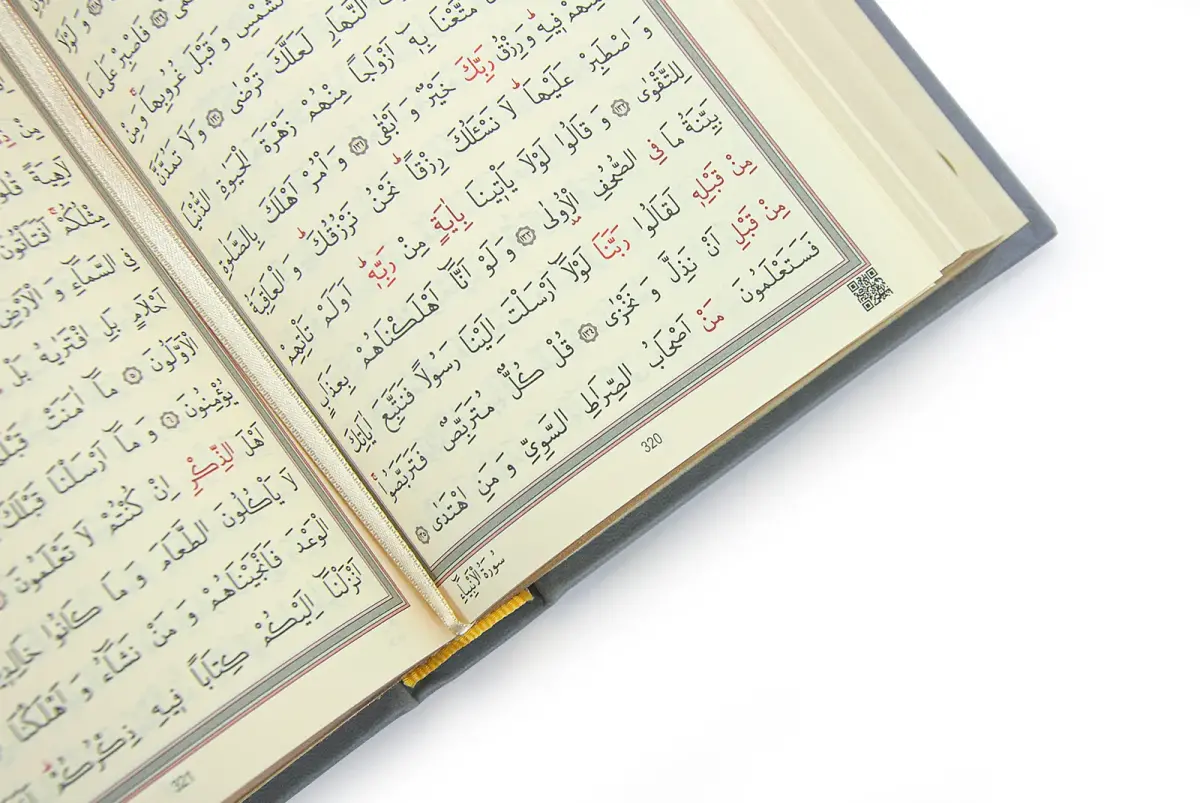 وَ لَوْلَا
فَاصْبِرْ عَلٰى مَا
الشَّمْسِ وَ قَبْلَ غُرُوبِهَاۚ وَ مِنْ
النَّهَارِ لَعَلَّكَ تَرْضٰى ﴿١٣٠﴾ وَ لَا تَمُدَّنَّ
مَتَّعْنَا بِهٖٓ اَزْوَاجًا مِنْهُمْ زَهْرَةَ الْحَيٰوةِ الدُّنْيَا
فٖيهِ وَ رِزْقُ رَبِّكَ خَيْرٌ وَ اَبْقٰى ﴿١٣١﴾ وَ أْمُرْ اَهْلَكَ بِالصَّلٰوةِ
وَ اصْطَبِرْ عَلَيْهَا لَا نَسْـَٔلُكَ رِزْقًا نَحْنُ نَرْزُقُكَ وَ الْعَاقِبَةُ
لِلتَّقْوٰى ﴿١٣٢﴾ وَ قَالُوا لَوْلَا يَأْتٖينَا بِاٰيَةٍ مِنْ رَبِّهٖ اَوَلَمْ تَأْتِهِمْ
بَيِّنَةُ مَا فِي الصُّحُفِ الْاُولٰى ﴿١٣٣﴾ وَ لَوْ اَنَّٓا اَهْلَكْنَاهُمْ بِعَذَابٍ
مِنْ قَبْلِهٖ لَقَالُوا رَبَّنَا لَوْلَٓا اَرْسَلْتَ اِلَيْنَا رَسُولًا فَنَتَّبِعَ اٰيَاتِكَ
مِنْ قَبْلِ اَنْ نَذِلَّ وَ نَخْزٰى ﴿١٣٤﴾ قُلْ كُلٌّ مُتَرَبِّصٌ فَتَرَبَّصُوا
فَسَتَعْلَمُونَ مَنْ اَصْحَابُ الصِّرَاطِ السَّوِيِّ وَ مَنِ اهْتَدٰى ﴿١٣٥﴾
320
سُورَةُ الْاَنْبِيَاءِ
مِنْ
لَاهِيَةً
مِثْلُكُمْ اَفَتَأْتُونَ
فِي السَّمَٓاءِ وَ الْاَرْضِ
اَحْلَامٍ بَلِ افْتَرٰيهُ بَلْ
الْاَوَّلُونَ ﴿٥﴾ مَٓا اٰمَنَتْ
يُؤْمِنُونَ ﴿٦﴾ وَ مَٓا اَرْسَلْنَا قَبْلَكَ
اَهْلَ الذِّكْرِ اِنْ كُنْتُمْ لَا تَعْلَمُونَ
لَا يَأْكُلُونَ الطَّعَامَ وَ مَا كَانُوا خَالِدٖينَ
الْوَعْدَ فَاَنْجَيْنَاهُمْ وَ مَنْ نَشَٓاءُ وَ اَهْلَكْنَا
اَنْزَلْنَٓا اِلَيْكُمْ كِتَابًا فٖيهِ ذِكْرُكُمْ
321